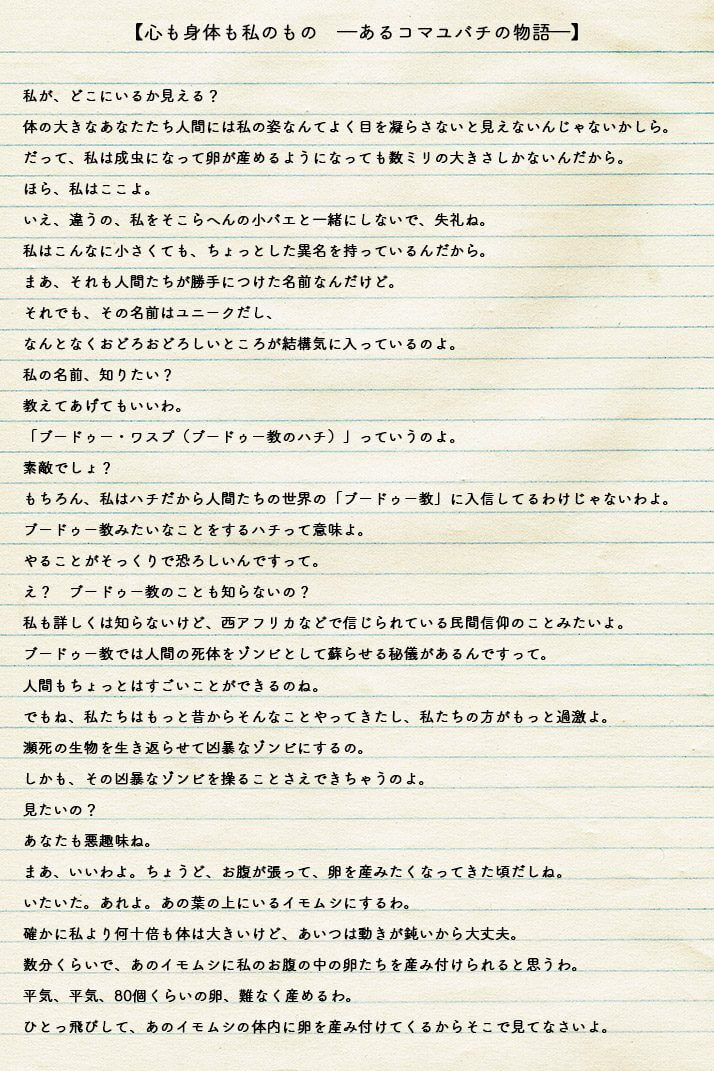 【心も身体も私のもの　―あるコマユバチの物語―】
私が、どこにいるか見える？
体の大きなあなたたち人間には私の姿なんてよく目を凝らさないと見えないんじゃないかしら。
だって、私は成虫になって卵が産めるようになっても数ミリの大きさしかないんだから。
ほら、私はここよ。
いえ、違うの、私をそこらへんの小バエと一緒にしないで、失礼ね。
私はこんなに小さくても、ちょっとした異名を持っているんだから。
まあ、それも人間たちが勝手につけた名前なんだけど。
それでも、その名前はユニークだし、
なんとなくおどろおどろしいところが結構気に入っているのよ。
私の名前、知りたい？
教えてあげてもいいわ。
「ブードゥー・ワスプ（ブードゥー教のハチ）」っていうのよ。
素敵でしょ？
もちろん、私はハチだから人間たちの世界の「ブードゥー教」に入信してるわけじゃないわよ。
ブードゥー教みたいなことをするハチって意味よ。
やることがそっくりで恐ろしいんですって。
え？　ブードゥー教のことも知らないの？
私も詳しくは知らないけど、西アフリカなどで信じられている民間信仰のことみたいよ。
ブードゥー教では人間の死体をゾンビとして蘇らせる秘儀があるんですって。
人間もちょっとはすごいことができるのね。
でもね、私たちはもっと昔からそんなことやってきたし、私たちの方がもっと過激よ。
瀕死の生物を生き返らせて凶暴なゾンビにするの。
しかも、その凶暴なゾンビを操ることさえできちゃうのよ。
見たいの？
あなたも悪趣味ね。
まあ、いいわよ。ちょうど、お腹が張って、卵を産みたくなってきた頃だしね。
いたいた。あれよ。あの葉の上にいるイモムシにするわ。
確かに私より何十倍も体は大きいけど、あいつは動きが鈍いから大丈夫。
数分くらいで、あのイモムシに私のお腹の中の卵たちを産み付けられると思うわ。
平気、平気、80個くらいの卵、難なく産めるわ。
ひとっ飛びして、あのイモムシの体内に卵を産み付けてくるからそこで見てなさいよ。